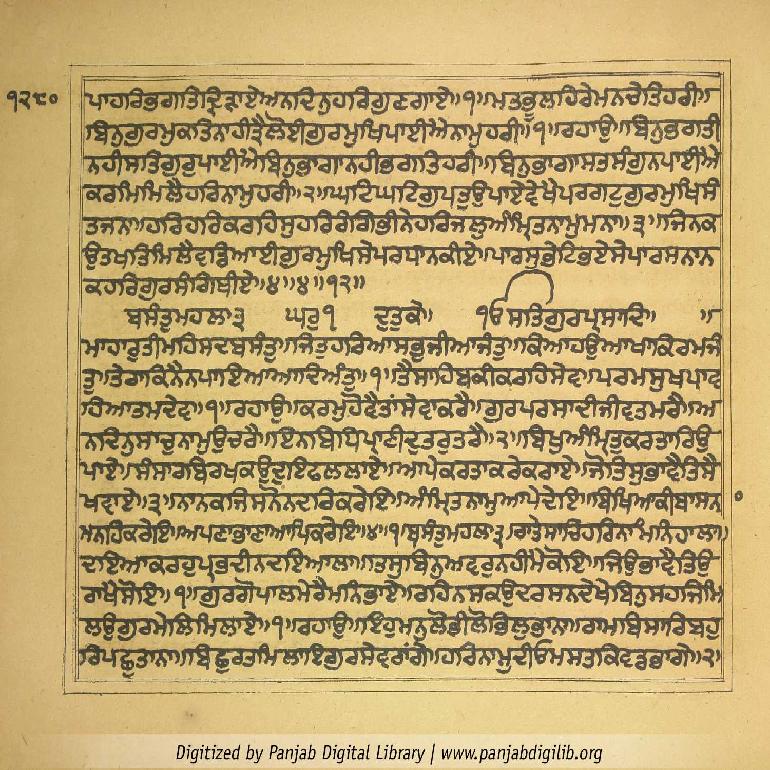 ੧੨੮੦
ਪਾਹਰਿਭਗਤਿਦ੍ਰਿੜਾਏਅਨਦਿਨੁਹਰਿਗੁਣਗਾਏ॥੧॥ਮਤਭੂਲਹਿਰੇਮਨਚੇਤਿਹਰੀ॥
ਬਿਨੁਗੁਰਮੁਕਤਿਨਾਹੀਤ੍ਰੈਲੋਈਗੁਰਮੁਖਿਪਾਈਐਨਾਮੁਹਰੀ॥੧॥ਰਹਾਉ॥ਬਿਨੁਭਗਤੀ
ਨਹੀਸਤਿਗੁਰੁਪਾਈਐਬਿਨੁਭਾਗਾਨਹੀਭਗਤਿਹਰੀ॥ਬਿਨੁਭਾਗਾਸਤਸੰਗੁਨਪਾਈਐ
ਕਰਮਿਮਿਲੈਹਰਿਨਾਮੁਹਰੀ॥੨॥ਘਟਿਘਟਿਗੁਪਤੁਉਪਾਏਵੇਖੈਪਰਗਟੁਗੁਰਮੁਖਿਸੰ
ਤਜਨਾ॥ਹਰਿਹਰਿਕਰਹਿਸੁਹਰਿਰੰਗਿਭੀਨੇਹਰਿਜਲੁਅੰਮ੍ਰਿਤਨਾਮੁਮਨਾ॥੩॥ਜਿਨਕ
ਉਤਖਤਿਮਿਲੈਵਡਿਆਈਗੁਰਮੁਖਿਸੇਪਰਧਾਨਕੀਏ॥ਪਾਰਸੁਭੇਟਿਭਏਸੇਪਾਰਸਨਾਨ
ਕਹਰਿਗੁਰਸੰਗਿਥੀਏ॥੪॥੪॥੧੨॥
ਬਸੰਤੁਮਹਲਾ੩ ਘਰੁ੧ ਦੁਤੁਕੇ॥ ੴਸਤਿਗੁਰਪ੍ਰਸਾਦਿ॥ ॥
ਮਾਹਾਰੁਤੀਮਹਿਸਦਬਸੰਤੁ॥ਜਿਤੁਹਰਿਆਸਭੁਜੀਆਜੰਤੁ॥ਕਿਆਹਉਆਖਾਕਿਰਮਜੰ
ਤੁ॥ਤੇਰਾਕਿਨੈਨਪਾਇਆਆਦਿਅੰਤੁ॥੧॥ਤੈਸਾਹਿਬਕੀਕਰਹਿਸੇਵ॥ਪਰਮਸੁਖਪਾਵ
ਹਿਆਤਮਦੇਵ॥੧॥ਰਹਾਉ॥ਕਰਮੁਹੋਵੈਤਾਂਸੇਵਾਕਰੈ॥ਗੁਰਪਰਸਾਦੀਜੀਵਤਮਰੈ॥ਅ
ਨਦਿਨੁਸਾਚੁਨਾਮੁਉਚਰੈ॥ਇਨਬਿਧਿਪ੍ਰਾਣੀਦੁਤਰੁਤਰੈ॥੨॥ਬਿਖੁਅੰਮ੍ਰਿਤੁਕਰਤਾਰਿਉ
ਪਾਏ॥ਸੰਸਾਰਬਿਰਖਕਉਦੁਇਫਲਲਾਏ॥ਆਪੇਕਰਤਾਕਰੇਕਰਾਏ॥ਜੋਤਿਸੁਭਾਵੈਤਿਸੈ
ਖਵਾਏ॥੩॥ਨਾਨਕਜਿਸਨੋਨਦਰਿਕਰੇਇ॥ਅੰਮ੍ਰਿਤਨਾਮੁਆਪੇਦੇਇ॥ਬਿਖਿਆਕੀਬਾਸਨ
ਮਨਹਿਕਰੇਇ॥ਅਪਣਾਭਾਣਾਆਪਿਕਰੇਇ॥੪॥੧॥ਬਸੰਤੁਮਹਲਾ੩॥ਰਾਤੇਸਾਚਿਹਰਿਨਾਮਿਨਿਹਾਲਾ॥
ਦਇਆਕਰਹੁਪ੍ਰਭਦੀਨਦਇਆਲਾ॥ਤਿਸੁਬਿਨੁਅਵਰੁਨਹੀਮੈਕੋਇ॥ਜਿਉਭਾਵੈਤਿਉ
ਰਾਖੈਸੋਇ॥੧॥ਗੁਰਗੋਪਾਲਮੇਰੈਮਨਿਭਾਏ॥ਰਹਿਨਸਕਉਦਰਸਨਦੇਖੇਬਿਨੁਸਹਜਿਮਿ
ਲਉਗੁਰਮੇਲਿਮਿਲਾਏ॥੧॥ਰਹਾਉ॥ਇਹੁਮਨੁਲੋਭੀਲੋਭਿਲੁਭਾਨਾ॥ਰਾਮਬਿਸਾਰਿਬਹੁ
ਰਿਪਛੁਤਾਨਾ॥ਬਿਛੁਰਤਮਿਲਾਇਗੁਰਸੇਵਰਾਂਗੇ॥ਹਰਿਨਾਮੁਦੀਓਮਸਤਕਿਵਡਭਾਗੇ॥੨॥
Digitized by Panjab Digital Library | www.panjabdigilib.org